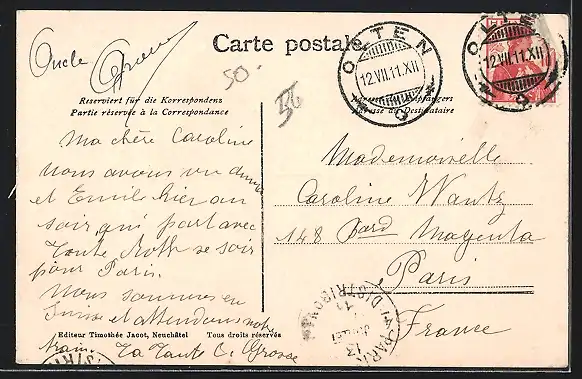 Carte postale.
OLTEN
12.VII.11.XII
OLTEN
12.VII.11.XII
Oncle
50.
Reserviert für die Korrespondenz
Partie réservée à la Correspondance
Ma chère Caroline
nous avons vu
et Emile hier au
soir qui part avec
Tante Roth ce soir
pour Paris.
Nous sommes en
Suisse et attendons notre
train. La Tante C. Grosse
Mademoiselle
Caroline Wantz
148 Bard Magenta
Paris
France
PARIS
DISTRIBUTION
Editeur Timothée Jacot, Neuchâtel Tous droits réservés